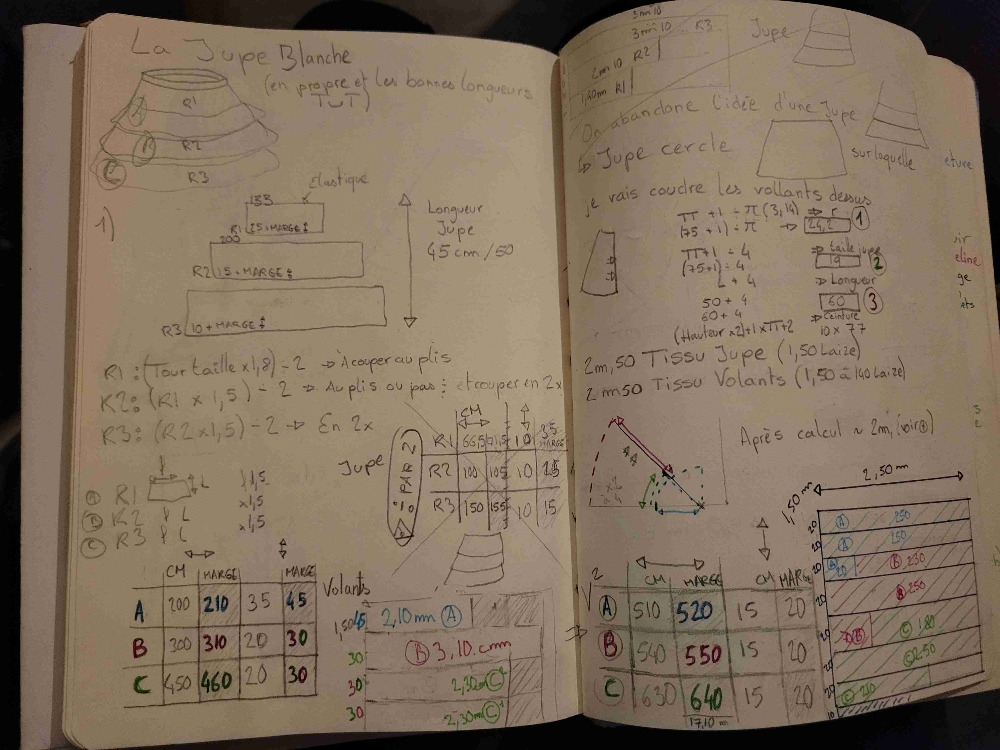 La Jupe Blanche
(en propre et les bonnes longueurs
TuT)
R1
A
R2
B
R3
C
Elastique
1)
133
R1 25+MARGE
200
R2 15+MARGE
R3 10+MARGE
Longueur
Jupe
45cm/50
R1 : (Tour taille x1,8) - 2 → A couper au plis
R2 : (R1 x 1,5) - 2 → Au plis ou pas : et couper en 2x
R3 : (R2x1,5) - 2 → En 2x
A R1 L }1,5
B R2 L x1,5
C R3 L x1,5
Jupe
÷ PAR 2
CM
MARGE
R1 66,5 71,5 10
R2 100 105 10 15
R3 150 155 10 15
CM MARGE MARGE
A 200 210 35 45
B 300 310 20 30
C 450 460 20 30
Volants
1,50 45 2,10m A
30 B 3,10.cmm
30 2,30m C
30 2,30m C
3m10
3m10 R3
2m10 R2
1,20m R1
Jupe
On abandone l'idée d'une Jupe
→ Jupe cercle
sur laquelle
je vais coudre les vollants dessus
π + 1 ÷ π (3,14) → r
(75+1) ÷ π → 24,2 1
π+1 ÷ 4 → taille jupe
(75+1) ÷ 4 19 2
L + 4 → Longueur
50 + 4 60 3
60 + 4 → Ceinture
(Hauteur x2)+1 x π+2 10 x 77
2m,50 Tissu Jupe (1,50 Laize)
2m50 Tissu Volants (1,50 à 140 Laize)
Après calcul ~ 2m, (voir
44
2,50 m
1,50 m
20 A 250
20 A 250
20 A 20 B 230
20 B 250
20 B C 180
20 C 250
20 C 210
10
V2
CM MARGE CM MARGE
A 510 520 15 20
B 540 550 15 20
C 630 640 15 20
17,10 m
eture
ir
eline
ge
ets